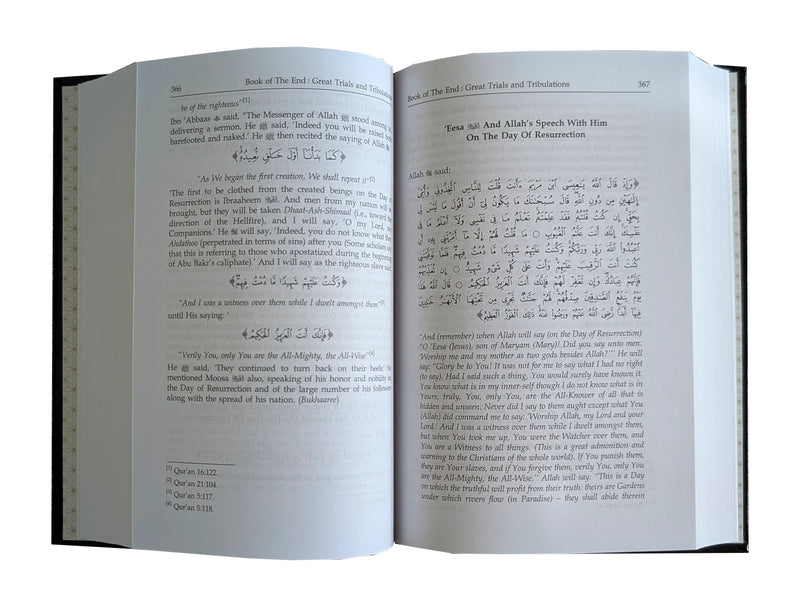 366 Book of The End : Great Trials and Tribulations
be of the righteous"[1]
Ibn 'Abbaas ﷺ said, "The Messenger of Allah ﷺ stood among us
delivering a sermon. He ﷺ said, 'Indeed you will be raised
barefooted and naked.' He ﷺ then recited the saying of Allah
﴿كَمَا بَدَأْنَا أَوَّلَ خَلْقٍ نُّعِيدُهُ﴾
"As We began the first creation, We shall repeat it"[2]
'The first to be clothed from the created beings on the Day of
Resurrection is Ibraaheem. And men from my nation will be
brought, but they will be taken Dhaat-Ash-Shimaal (i.e., toward the
direction of the Hellfire), and I will say, 'O my Lord, my
Companions.' He will say, 'Indeed, you do not know what they
Ahdathoo (perpetrated in terms of sins) after you (Some scholars say
that this is referring to those who apostatized during the beginning
of Abu Bakr's caliphate).' And I will say as the righteous slave said
﴿وَكُنتُ عَلَيْهِمْ شَهِيدًا مَّا دُمْتُ فِيهِمْ﴾
"And I was a witness over them while I dwelt amongst them"[3]
until His saying: '
﴿فَإِنَّكَ أَنتَ الْعَزِيزُ الْحَكِيمُ﴾
"Verily You, only You are the All-Mighty, the All-Wise"[4]
He ﷺ said, 'They continued to turn back on their heels.' He
mentioned Moosa also, speaking of his honor and nobility on
the Day of Resurrection and of the large number of his followers
along with the spread of his nation. (Bukhaaree)
[1] Qur'an 16:122.
[2] Qur'an 21:104.
[3] Qur'an 5:117.
[4] Qur'an 5:118.
Book of The End : Great Trials and Tribulations 367
'Eesa And Allah's Speech With Him
On The Day Of Resurrection
Allah said:
﴿وَإِذْ قَالَ اللَّهُ يَعِيسَى ابْنَ مَرْيَمَ ءَأَنتَ قُلْتَ لِلنَّاسِ اتَّخِذُونِي وَأُمِّيَ
إِلَهَيْنِ مِن دُونِ اللَّهِ قَالَ سُبْحَنَكَ مَا يَكُونُ لِي أَنْ أَقُولَ مَا لَيْسَ لِي
بِحَقٍّ إِن كُنتُ قُلْتُهُ فَقَدْ عَلِمْتَهُ تَعْلَمُ مَا فِي نَفْسِي وَلَا أَعْلَمُ مَا فِي
نَفْسِكَ إِنَّكَ أَنتَ عَلَّمُ الْغُيُوبِ ۝ مَا قُلْتُ لَهُمْ إِلَّا مَا أَمَرْتَنِي بِهِ أَنِ
اعْبُدُوا اللَّهَ رَبِّي وَرَبَّكُمْ وَكُنتُ عَلَيْهِمْ شَهِيدًا مَّا دُمْتُ فِيهِمْ فَلَمَّا تَوَفَّيْتَنِي
كُنتَ أَنتَ الرَّقِيبَ عَلَيْهِمْ وَأَنتَ عَلَى كُلِّ شَيْءٍ شَهِيدٌ ۝ إِن تُعَذِّبْهُمْ
فَإِنَّهُمْ عِبَادُكَ وَإِن تَغْفِرْ لَهُمْ فَإِنَّكَ أَنتَ الْعَزِيزُ الْحَكِيمُ ۝ قَالَ اللَّهُ هَذَا
يَوْمُ يَنفَعُ الصَّدِقِينَ صِدْقُهُمْ لَهُمْ جَنَّتٌ تَجْرِي مِن تَحْتِهَا الْأَنْهَرُ خَلِدِينَ
فِيهَا أَبَدًا رَّضِيَ اللَّهُ عَنْهُمْ وَرَضُوا عَنْهُ ذَلِكَ الْفَوْزُ الْعَظِيمُ﴾
"And (remember) when Allah will say (on the Day of Resurrection)
"O 'Eesa (Jesus), son of Maryam (Mary)! Did you say unto men:
'Worship me and my mother as two gods besides Allah?'" He will
say: "Glory be to You! It was not for me to say what I had no right
(to say). Had I said such a thing, You would surely have known it.
You know what is in my inner-self though I do not know what is in
Yours, truly, You, only You, are the All-Knower of all that is
hidden and unseen. Never did I say to them aught except what You
(Allah) did command me to say: 'Worship Allah, my Lord and your
Lord.' And I was a witness over them while I dwelt amongst them,
but when You took me up, You were the Watcher over them, and
You are a Witness to all things. (This is a great admonition and
warning to the Christians of the whole world). If You punish them,
they are Your slaves, and if You forgive them, verily You, only You
are the All-Mighty, the All-Wise." Allah will say: "This is a Day
on which the truthful will profit from their truth: theirs are Gardens
under which rivers flow (in Paradise) – they shall abide therein